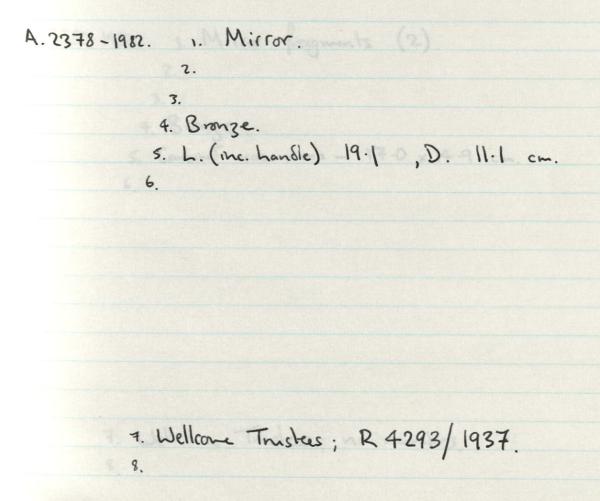 A.2378-1982. 1. Mirror.
2.
3.
4. Bronze.
5. L. (inc. handle) 19.1 , D. 11.1 cm.
6.
7. Wellcome Trustees; R 4293/1937.
8.